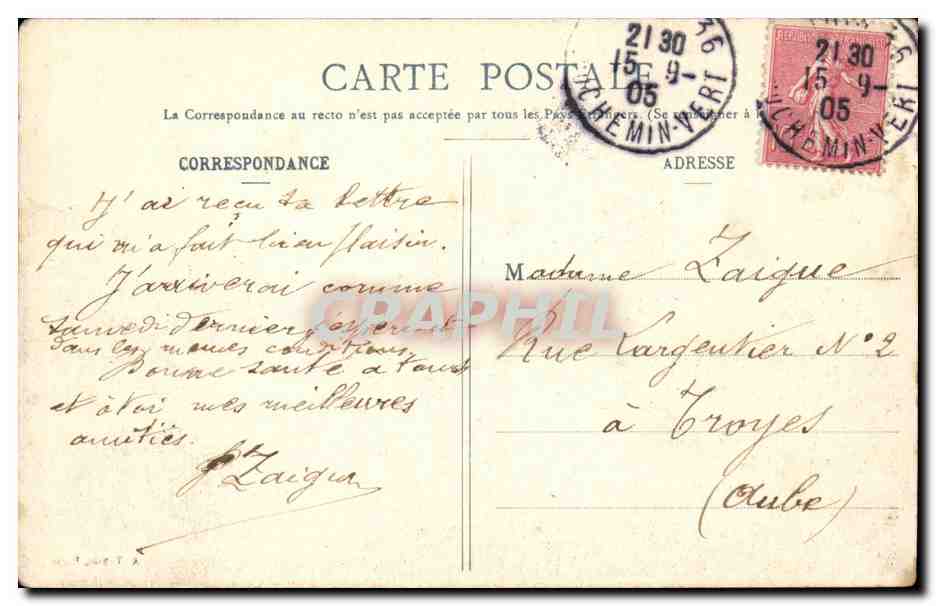 CARTE POSTALE
La Correspondance au recto n'est pas acceptée par tous les Pays étrangers. (Se renseigner à
CORRESPONDANCE
J'ai reçu ta lettre
qui m'a fait bien plaisir.
J'arriverai comme
samedi dernier
dans les memes conditions
Bonne santé à tous
et à toi mes meilleures
amitiés.
Zaigue
ADRESSE
Madame Zaigue
Rue Largentier N° 2
à Troyes
(Aube)
36
21 30
15 9-
05
CHEMIN-VERT
21 30
15 9-
05
CHEMIN-VERT
CPARAMA
CRAPHIL